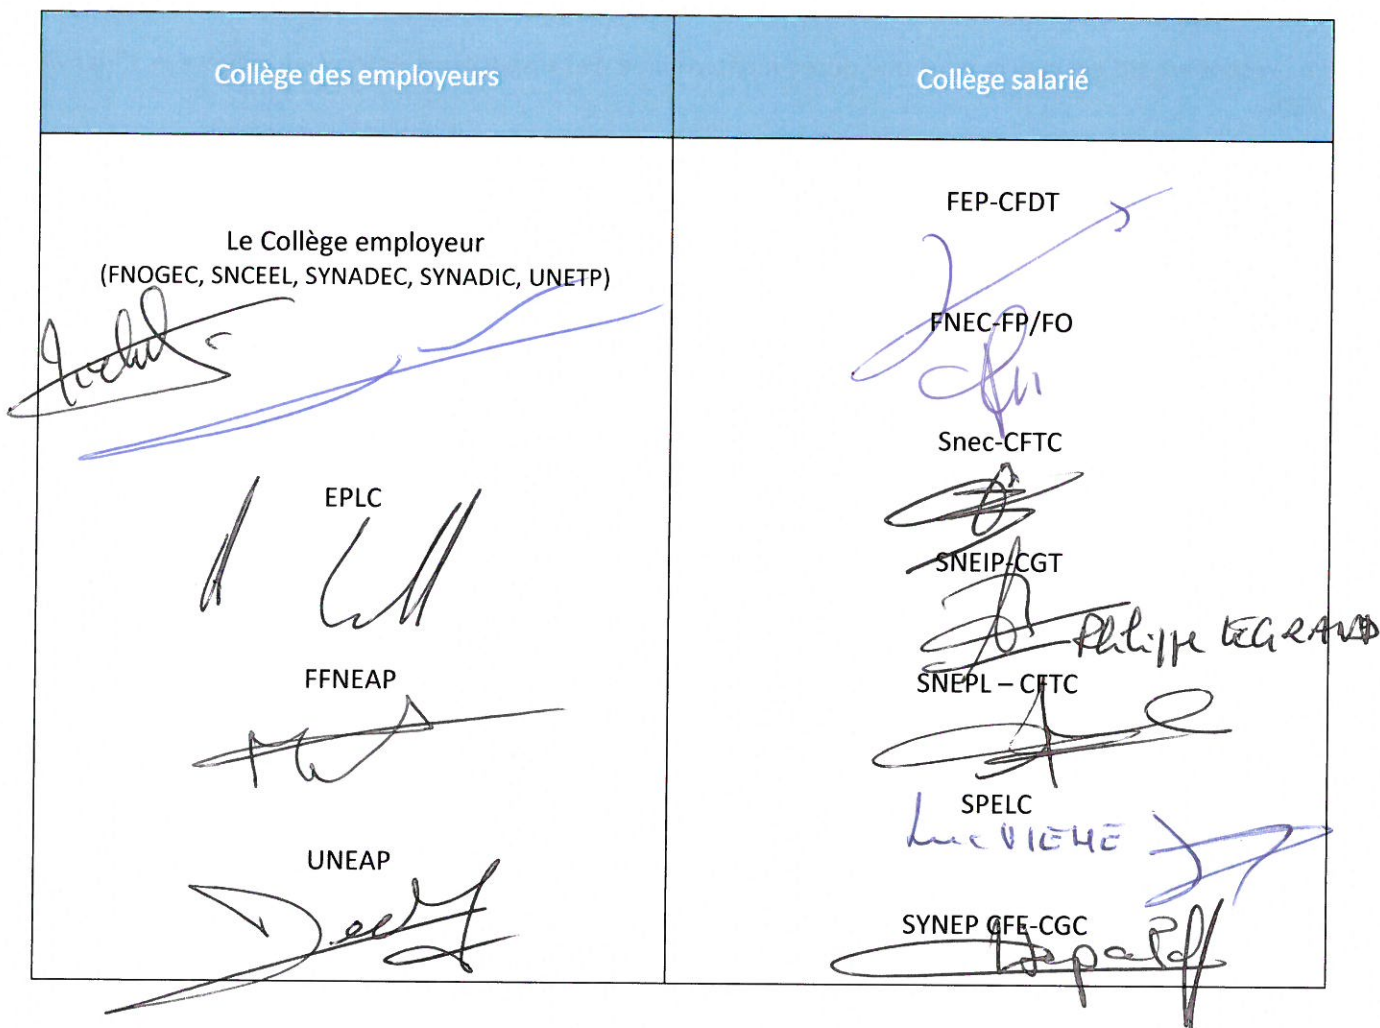 Collège des employeurs
Collège salarié
Le Collège employeur
(FNOGEC, SNCEEL, SYNADEC, SYNADIC, UNETP)
EPLC
FFNEAP
UNEAP
FEP-CFDT
FNEC-FP/FO
Snec-CFTC
SNEIP-CGT
Philippe LEGRAND
SNEPL – CFTC
SPELC
Luc VIEHE
SYNEP CFE-CGC